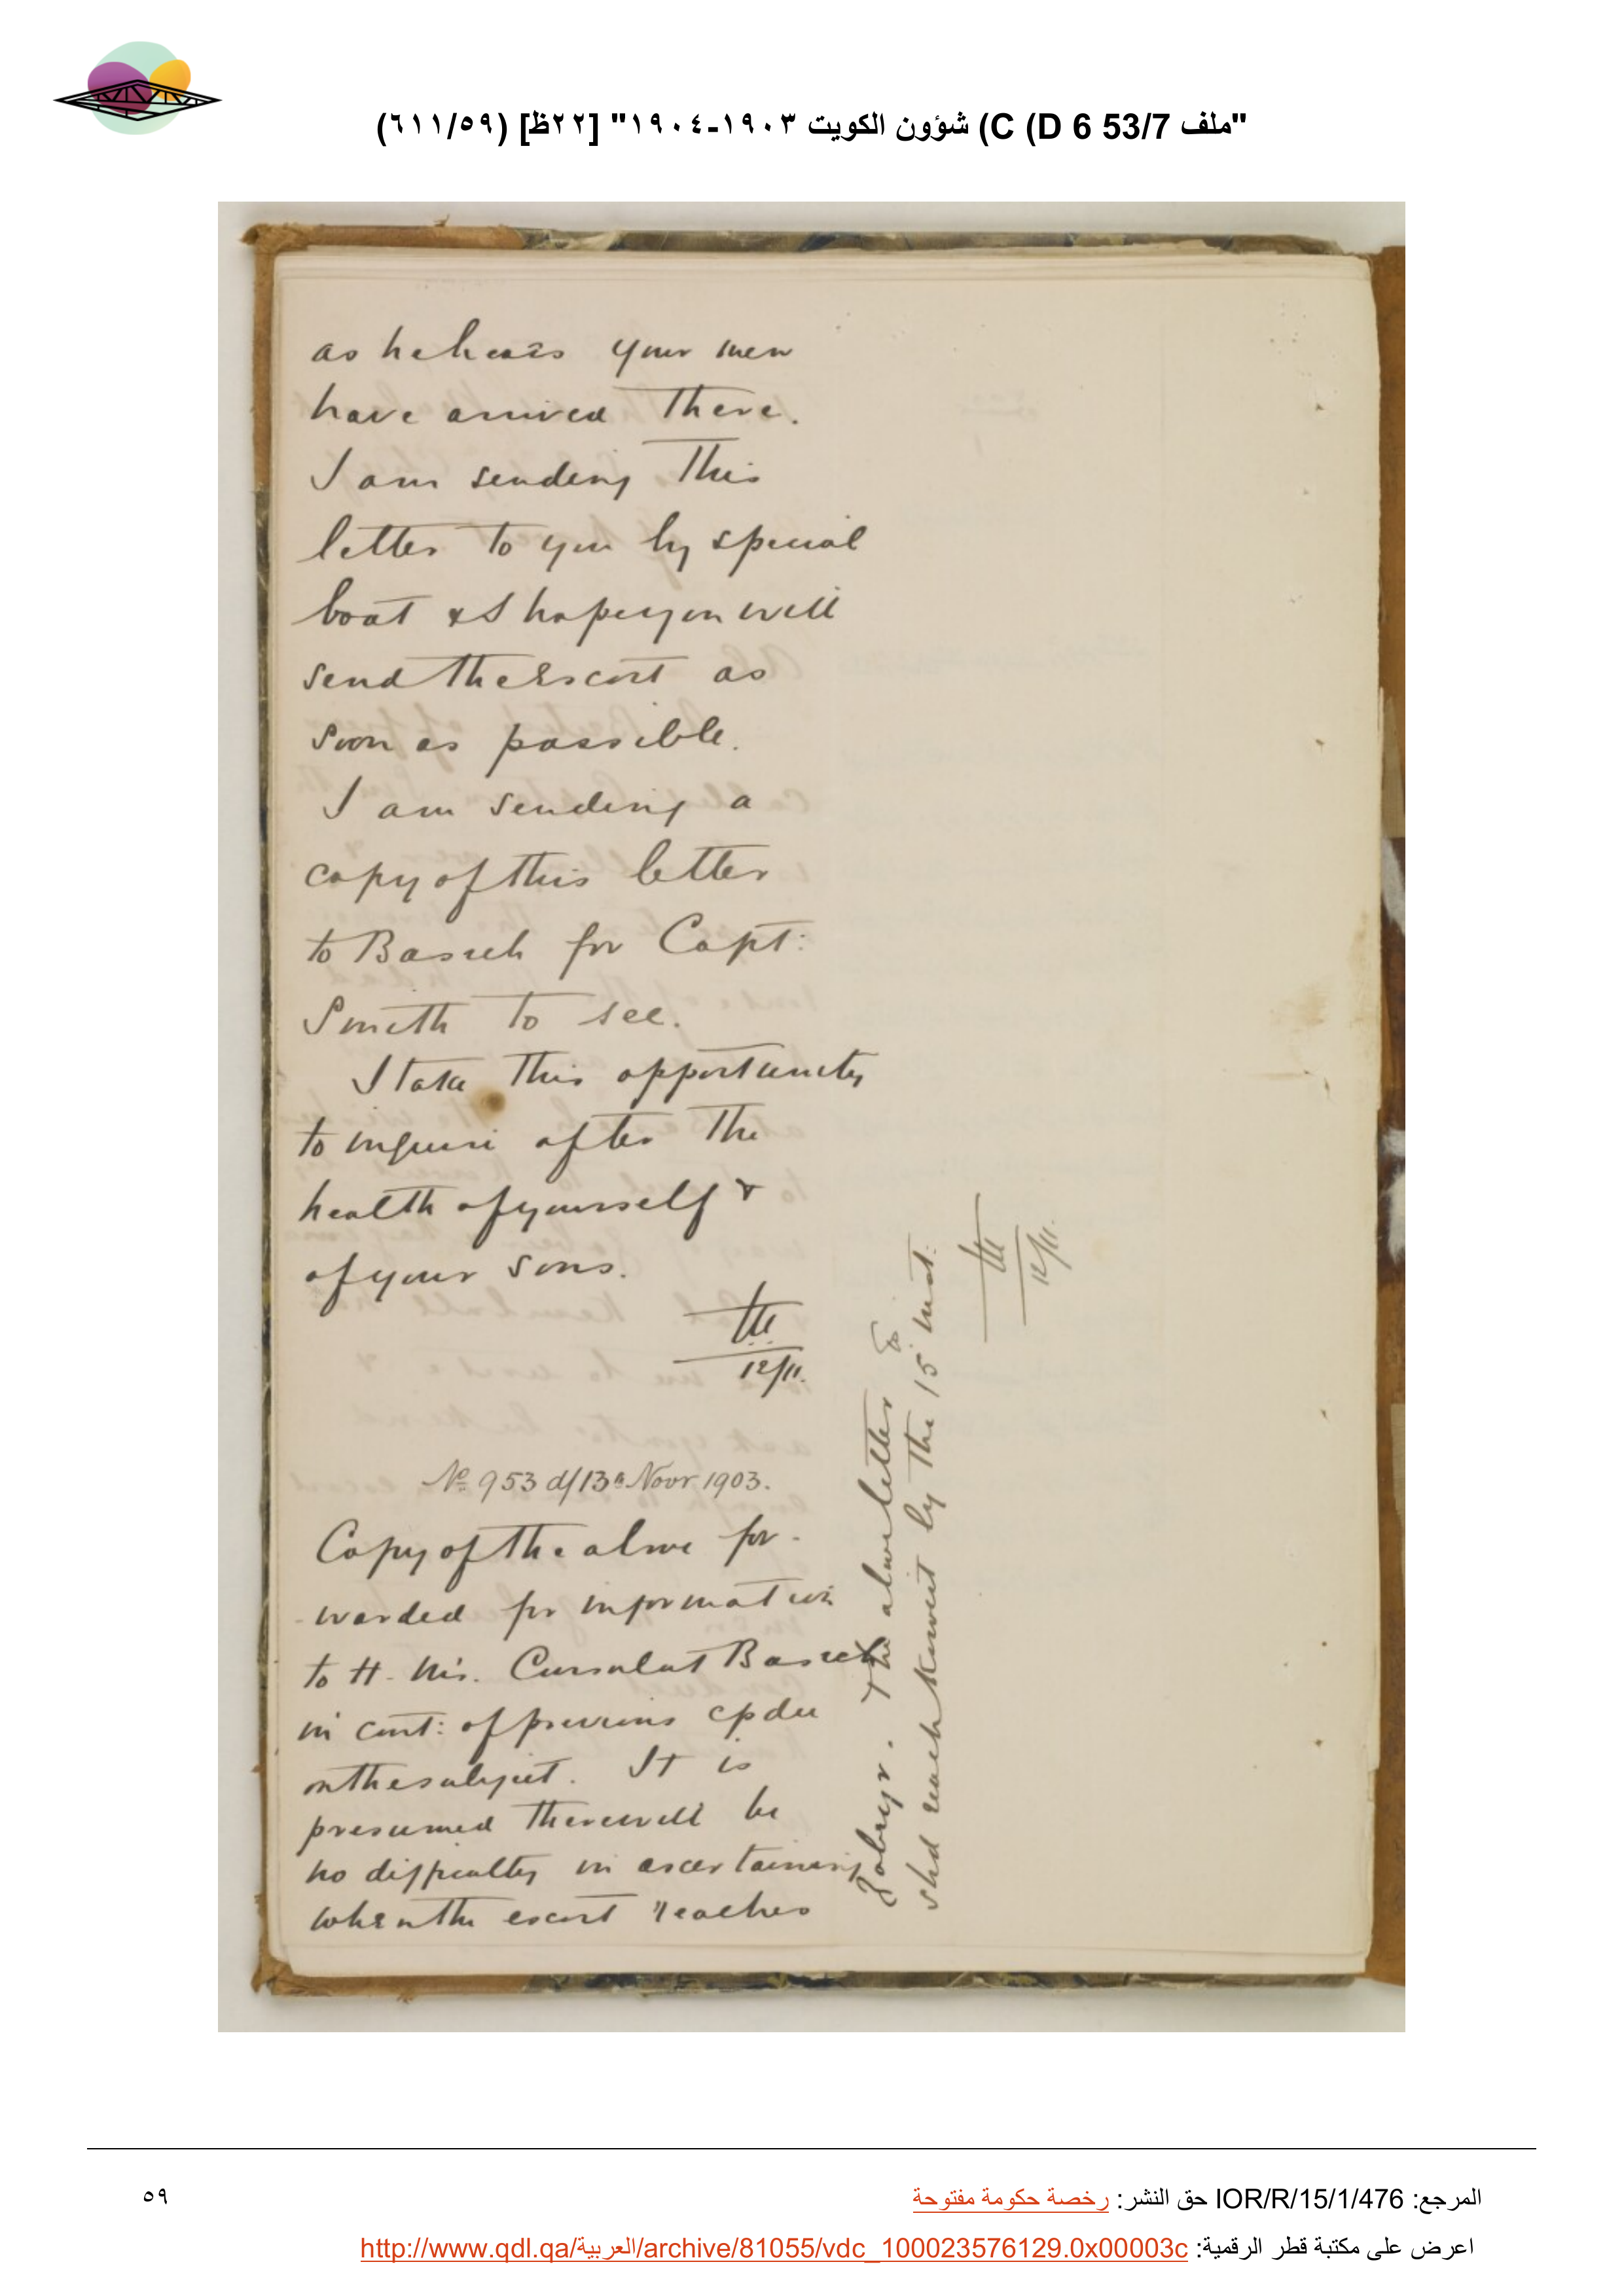 "ملف 53/7 C (D 6) شؤون الكويت ١٩٠٣-١٩٠٤" [٢٢ظ] (٦١١/٥٩)
as he hears your men
have arrived there.
I am sending this
letter to you by special
boat & I hope you will
send the Escort as
soon as possible.
I am sending a
copy of this letter
to Basreh for Capt:
Smith to see.
I take this opportunity
to inquire after the
health of yourself &
of your sons.
12/11.
No 953 d/13th Novr 1903.
Copy of the above for-
-warded for information
to H. M's. Consulat Basreh
in cont: of previous cpdce
on the subject. It is
presumed there will be
no difficulty in ascertaining
when the escort reaches
Zobeyr. The above letter
shd reach Kuweit by the 15th inst.
12/11.
المرجع: IOR/R/15/1/476 حق النشر: رخصة حكومة مفتوحة
٥٩
اعرض على مكتبة قطر الرقمية: http://www.qdl.qa/العربية/archive/81055/vdc_100023576129.0x00003c